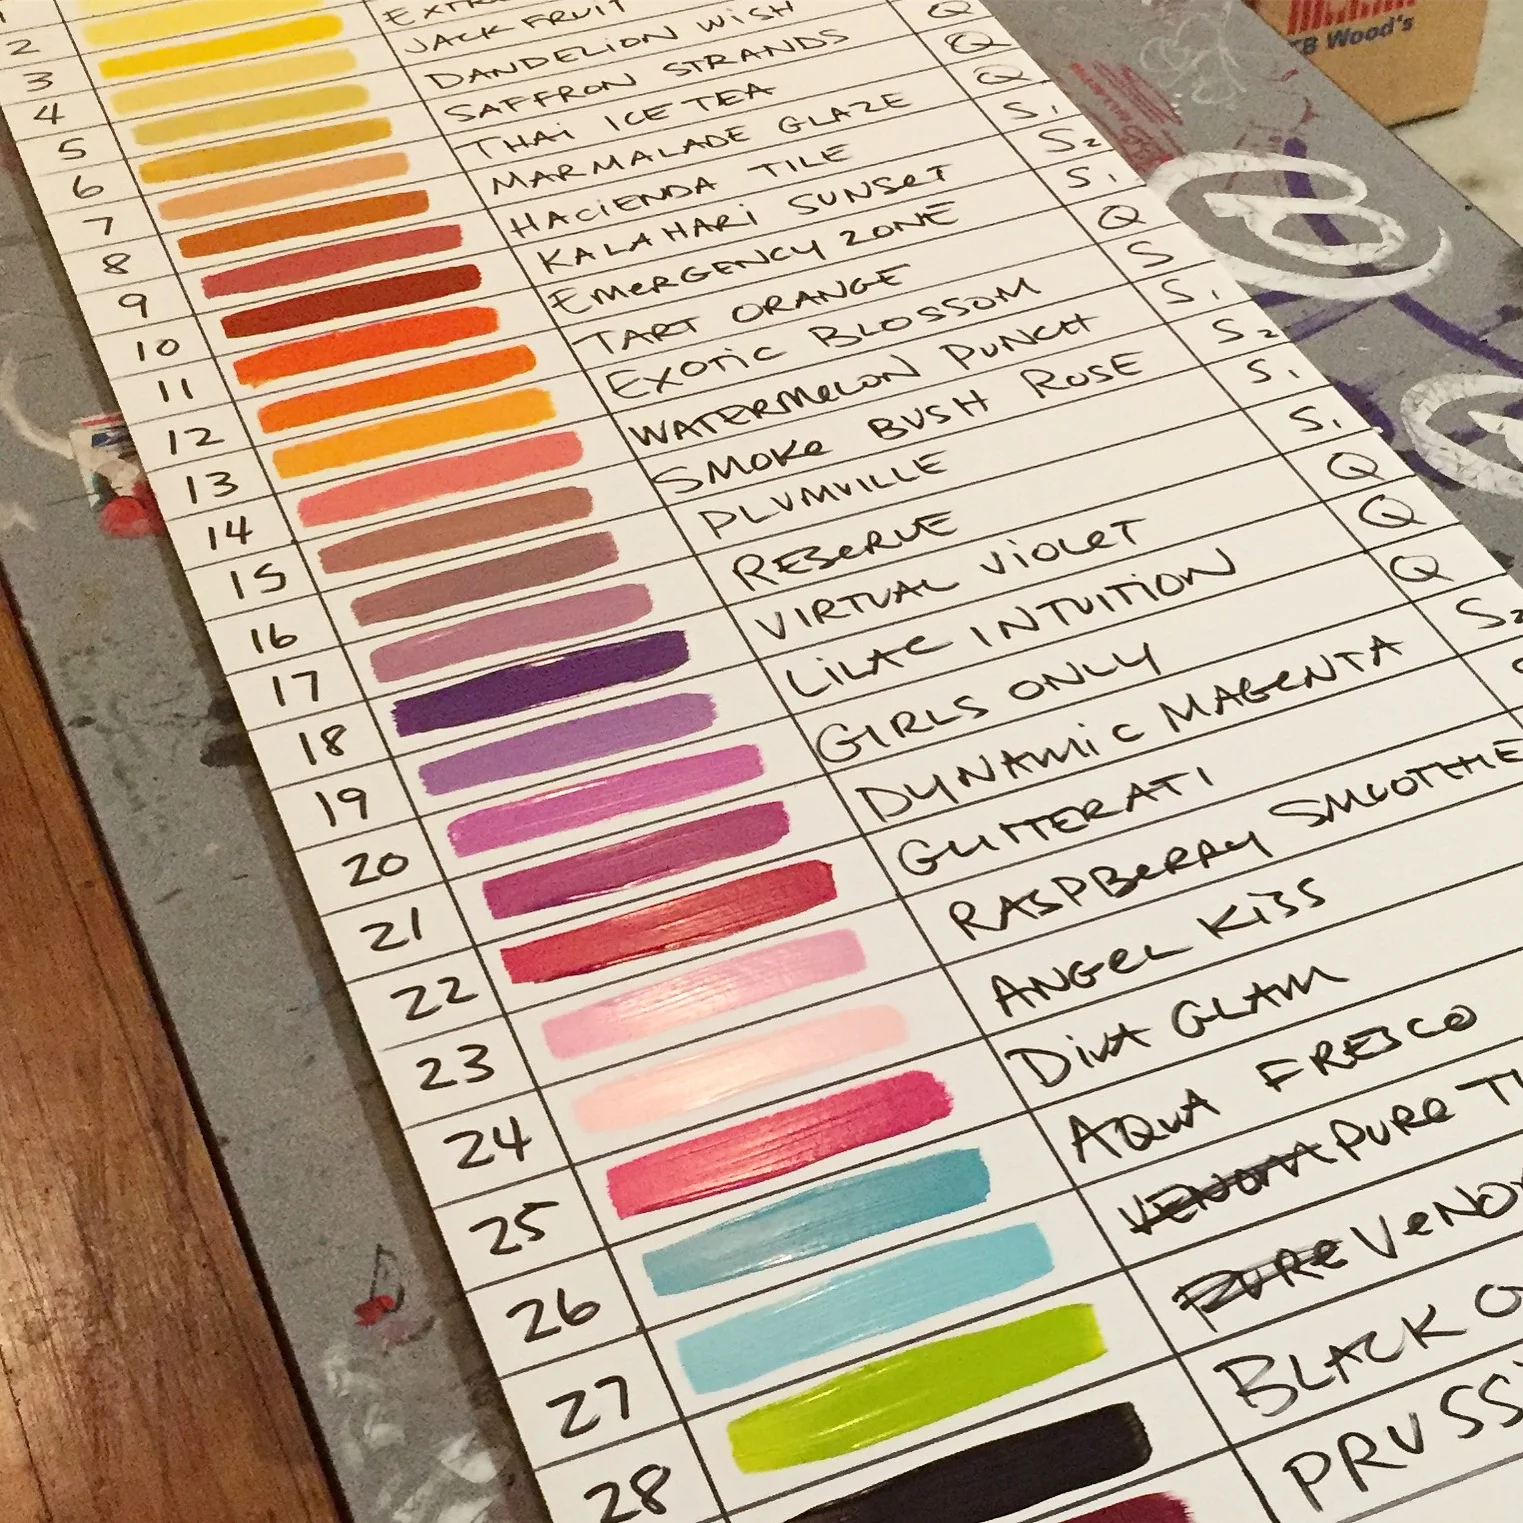 1
2
3
4 JACKFRUIT
5 DANDELION WISH
6 SAFFRON STRANDS Q
7 THAI ICE TEA Q
8 MARMALADE GLAZE Q
9 HACIENDA TILE S1
10 KALAHARI SUNSET S2
11 EMERGENCY ZONE S1
12 TART ORANGE Q
13 EXOTIC BLOSSOM S
14 WATERMELON PUNCH S1
15 SMOKE BUSH ROSE S2
16 PLUMVILLE S1
17 RESERVE S1
18 VIRTUAL VIOLET Q
19 LILAC INTUITION Q
20 GIRLS ONLY Q
21 DYNAMIC MAGENTA S2
22 GLITTERATI
23 RASPBERRY SMOOTHIE
24 ANGEL KISS
25 DIVA GLAM
26 AQUA FRESCO
27 VENOM PURE
28 PURE VENOM
BLACK
Wood's